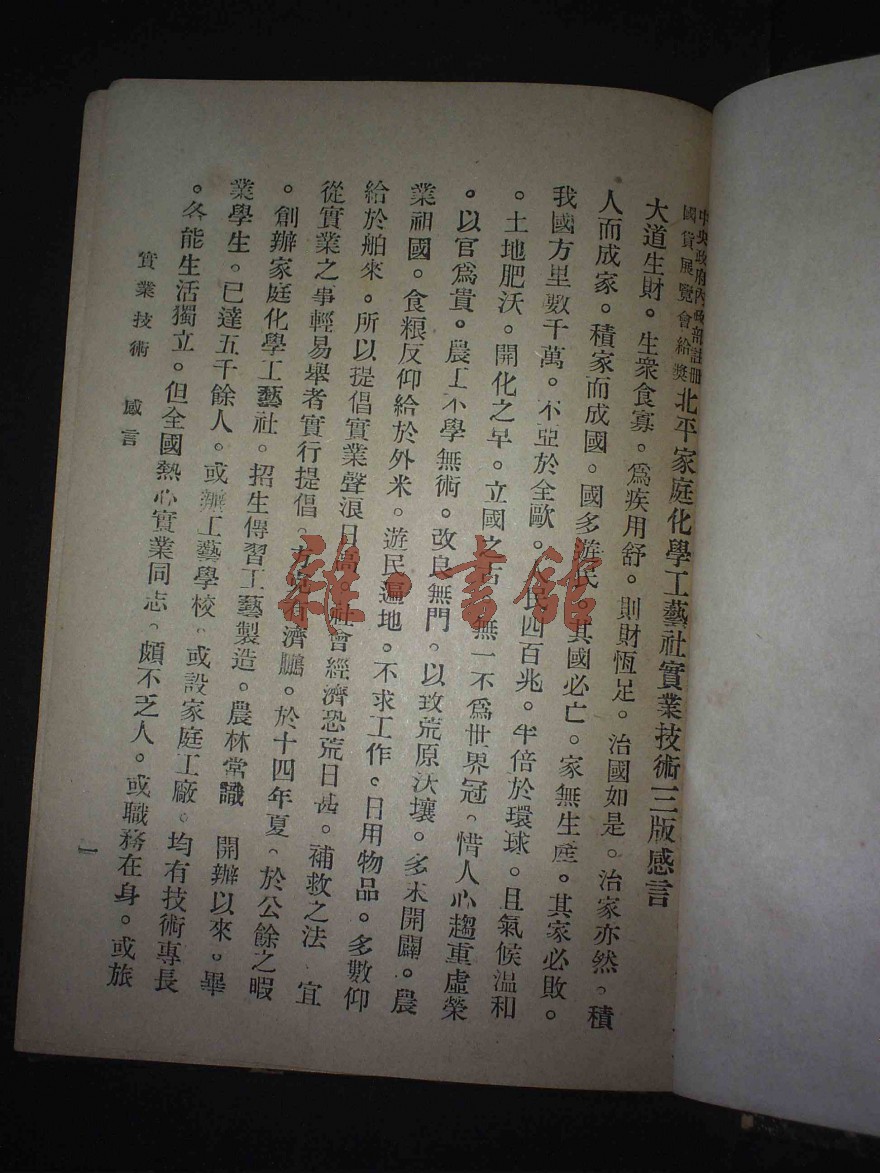 中央政府內政部註冊
國貨展覽會給獎
北平家庭化學工藝社實業技術三版感言
大道生財。生衆食寡。爲疾用舒。則財恆足。治國如是。治家亦然。積
人而成家。積家而成國。國多游民。其國必亡。家無生產。其家必敗。
我國方里數千萬。不亞於全歐。人民四百兆。半倍於環球。且氣候溫和
。土地肥沃。開化之早。立國之古。無一不爲世界冠。惜人心趨重虛榮
。以官爲貴。農工不學無術。改良無門。以致荒原沃壤。多未開闢。農
業祖國。食粮反仰給於外米。游民遍地。不求工作。日用物品。多數仰
給於舶來。所以提倡實業聲浪日高。社會經濟恐荒日甚。補救之法 宜
從實業之事輕易舉者實行提倡。方克有濟鵬。於十四年夏。於公餘之暇
。創辦家庭化學工藝社。招生傳習工藝製造。農林常識 開辦以來。畢
業學生。已達五千餘人。或辦工藝學校。或設家庭工廠。均有技術專長
。各能生活獨立。但全國熱心實業同志。頗不乏人。或職務在身。或旅
實業技術 感言
一
雜·書館